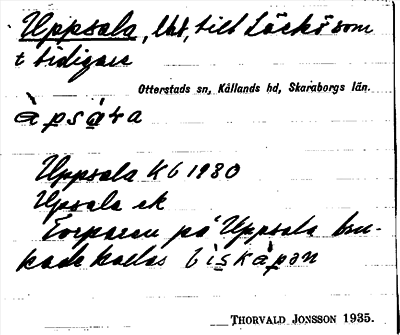 Uppsala, lht, till Läckö som
t tidigare
Otterstads sn, Kållands hd, Skaraborgs län.
àpsáɩa
Uppsala K6 1980
Upsala ek
Torparen på Uppsala bru-
kade kallas biskàpən
Thorvald Jonsson 1935.